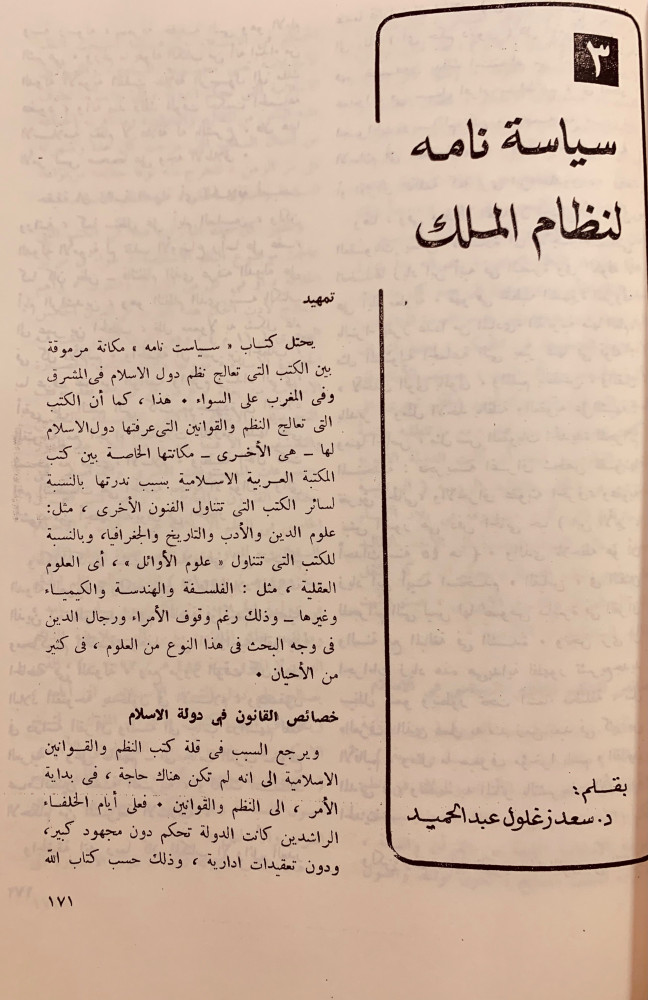 ٣
سياسة نامه
لنظام الملك
تمهيد
يحتل كتاب « سياست نامه » مكانة مرموقة
بين الكتب التى تعالج نظم دول الاسلام فى المشرق
وفى المغرب على السواء ٠ هذا ، كما أن الكتب
التى تعالج النظم والقوانين التى عرفتها دول الاسلام
لها ــ هى الأخرى ــ مكانتها الخاصة بين كتب
المكتبة العربية الاسلامية بسبب ندرتها بالنسبة
لسائر الكتب التى تتناول الفنون الأخرى ، مثل :
علوم الدين والأدب والتاريخ والجغرافيا، وبالنسبة
للكتب التى تتناول « علوم الأوائل » ، أى العلوم
العقلية ، مثل : الفلسفة والهندسة والكيمياء
وغيرها ــ وذلك رغم وقوف الأمراء ورجال الدين
فى وجه البحث فى هذا النوع من العلوم ، فى كثير
من الأحيان ٠
خصائص القانون فى دولة الاسلام
ويرجع السبب فى قلة كتب النظم والقــوانين
الاسلامية الى انه لم تكن هناك حاجة ، فى بداية
الأمر ، الى النظم والقوانين ٠ فعلى أيام الخلفـاء
الراشدين كانت الدولة تحكم دون مجهود كبير،
ودون تعقيدات ادارية ، وذلك حسب كتاب الله
بقـلـم:
د. سعد زغلول عبد الحميد
١٧١